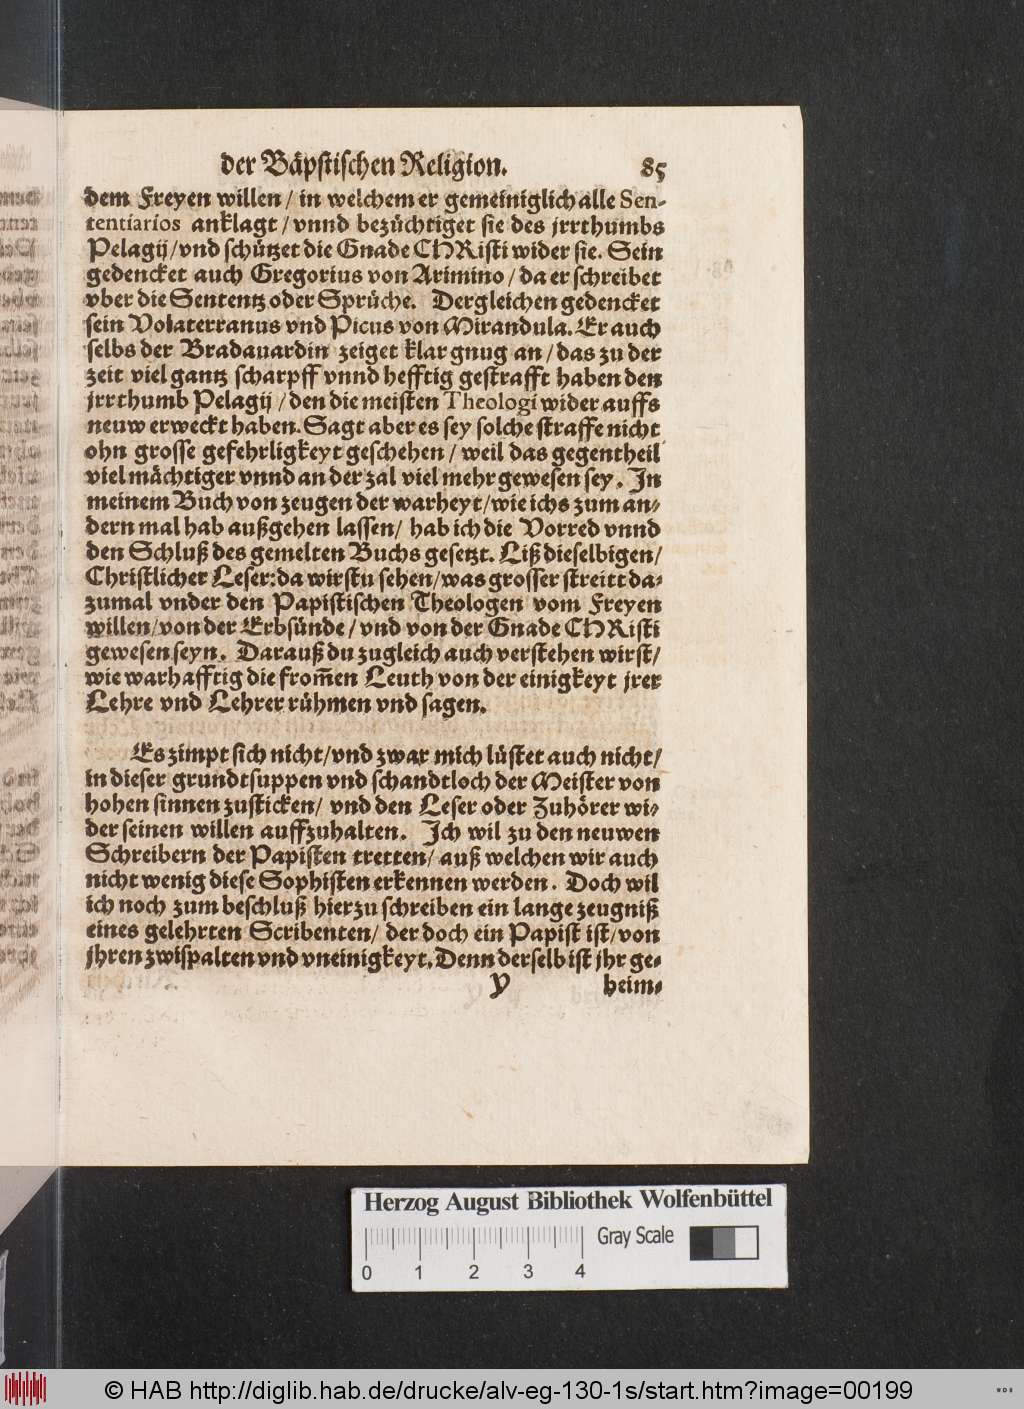 der Bäpstischen Religion. 85
dem Freyen willen / in welchem er gemeiniglich alle Sen-
tentiarios anklagt / vnnd bezüchtiget sie des jrrthumbs
Pelagij / vnd schützet die Gnade CHRisti wider sie. Sein
gedencket auch Gregorius von Arimino / da er schreibet
vber die Sententz oder Sprüche. Dergleichen gedencket
sein Volaterranus vnd Picus von Mirandula. Er auch
selbs der Bradauardin zeiget klar gnug an / das zu der
zeit viel gantz scharpff vnnd hefftig gestrafft haben den
jrrthumb Pelagij / den die meisten Theologi wider auffs
neuw erweckt haben. Sagt aber es sey solche straffe nicht
ohn grosse gefehrligkeyt geschehen / weil das gegentheil
viel mächtiger vnnd an der zal viel mehr gewesen sey. In
meinem Buch von zeugen der warheyt / wie ichs zum an-
dern mal hab außgehen lassen / hab ich die Vorred vnnd
den Schluß des gemelten Buchs gesetzt. Liß dieselbigen /
Christlicher Leser: da wirstu sehen / was grosser streitt da-
zumal vnder den Papistischen Theologen vom Freyen
willen / von der Erbsünde / vnd von der Gnade CHRisti
gewesen seyn. Darauß du zugleich auch verstehen wirst /
wie warhafftig die from̃en Leuth von der einigkeyt jrer
Lehre vnd Lehrer rühmen vnd sagen.
Es zimpt sich nicht / vnd zwar mich lüstet auch nicht /
in dieser grundtsuppen vnd schandtloch der Meister von
hohen sinnen zusticken / vnd den Leser oder Zuhörer wi-
der seinen willen auffzuhalten. Ich wil zu den neuwen
Schreibern der Papisten tretten / auß welchen wir auch
nicht wenig diese Sophisten erkennen werden. Doch wil
ich noch zum beschluß hierzu schreiben ein lange zeugniß
eines gelehrten Scribenten / der doch ein Papist ist / von
jhren zwispalten vnd vneinigkeyt. Denn derselb ist jhr ge-
Y heim-
Herzog August Bibliothek Wolfenbüttel
Gray Scale
0 1 2 3 4
© HAB http://diglib.hab.de/drucke/alv-eg-130-1s/start.htm?image=00199